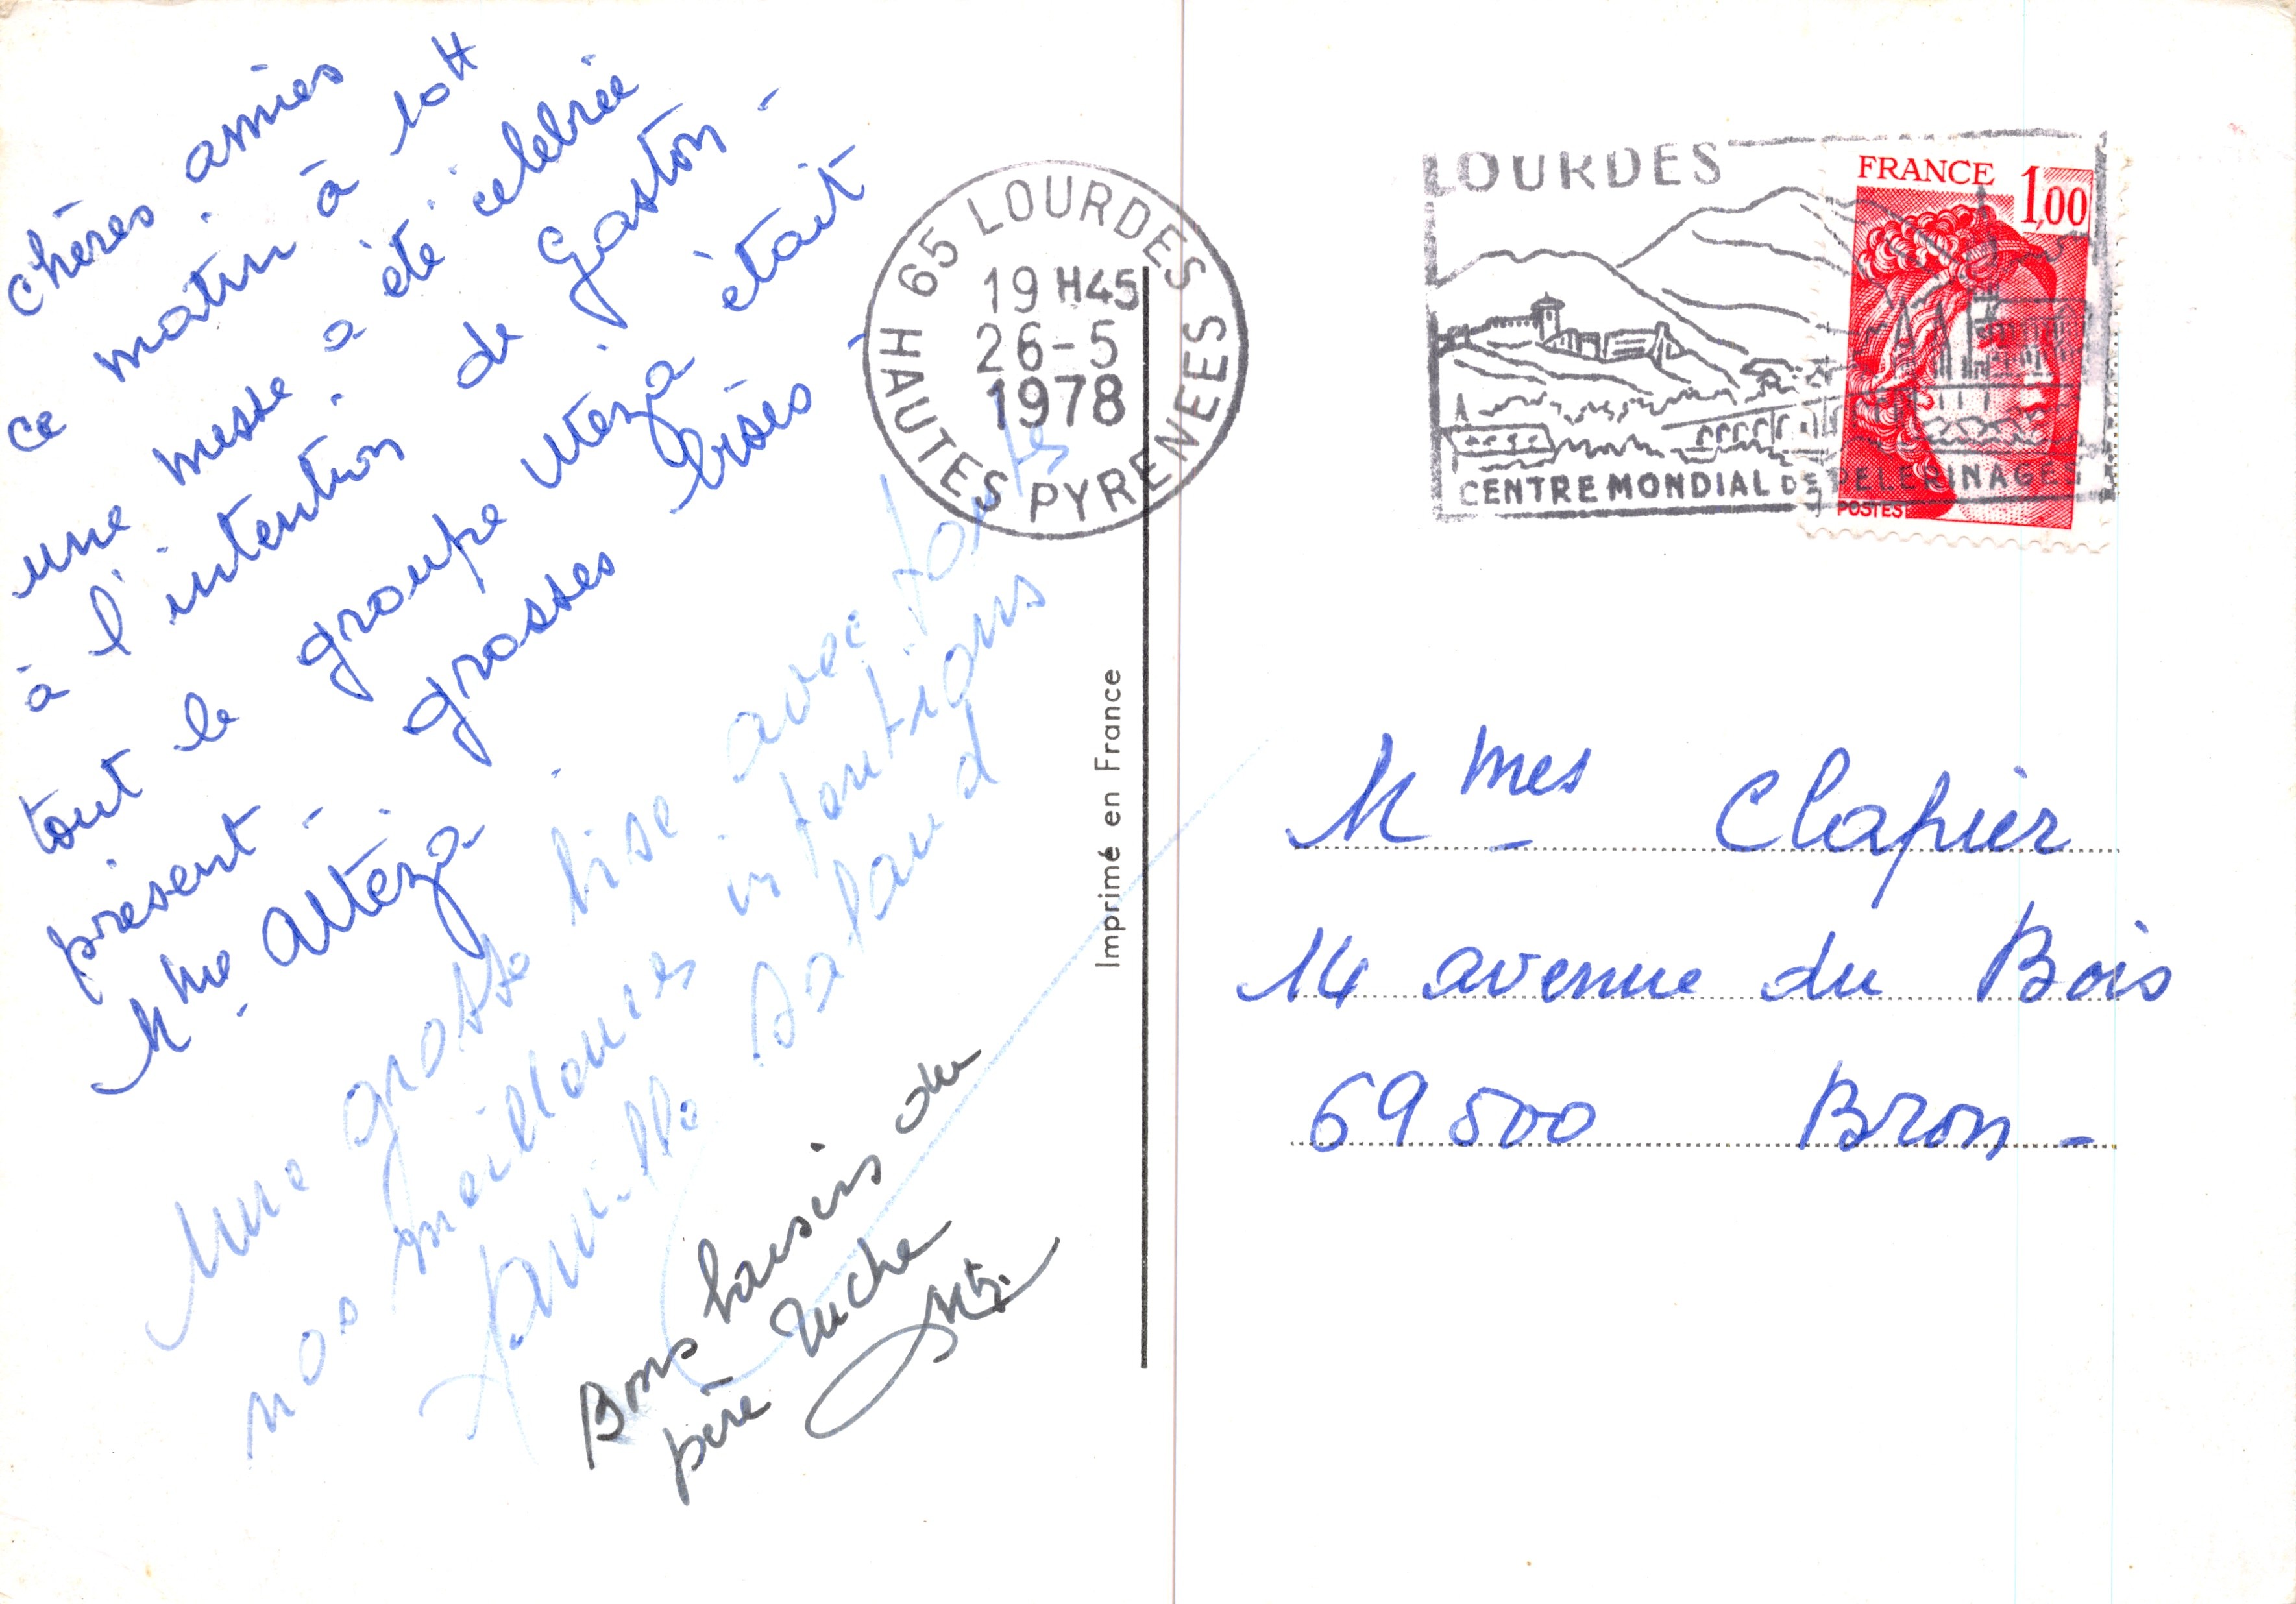 chères amies
ce matin à 10H
une messe a été célébrée
à l'intention de Gaston -
tout le groupe Utéza était
présent - grosses bises -
Mme Altéza
Une grosse bise avec toutes
nos meilleures intentions
famille Balaud
Bons baisers du
père Zuche
65 LOURDES
19 H45
26-5
1978
HAUTES PYRENEES
Imprimé en France
LOURDES
CENTRE MONDIAL DE PELERINAGES
FRANCE 1,00
POSTES
Mmes Clapier
14 avenue du Bois
69500 Bron -